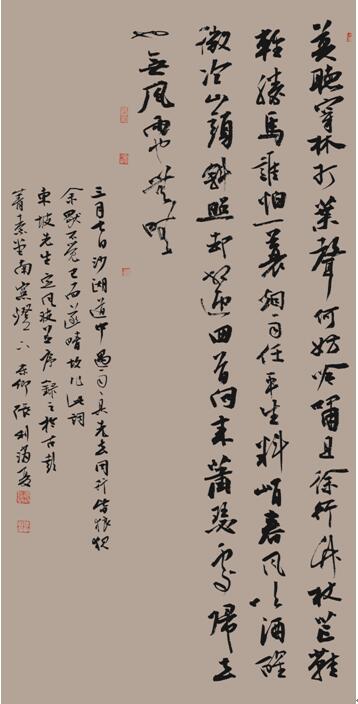 莫聽穿林打葉聲何妨吟嘯且徐行竹杖芒鞋
輕勝馬誰怕一蓑煙雨任平生料峭春風吹酒醒
微冷山頭斜照却相迎回首向來蕭瑟處歸去
也無風雨也無晴
三月七日沙湖道中遇雨雨具先去同行皆狼狽
余獨不覺已而遂晴故作此詞
東坡先生定風波並序錄之於古彭
菁素堂南窗燈下